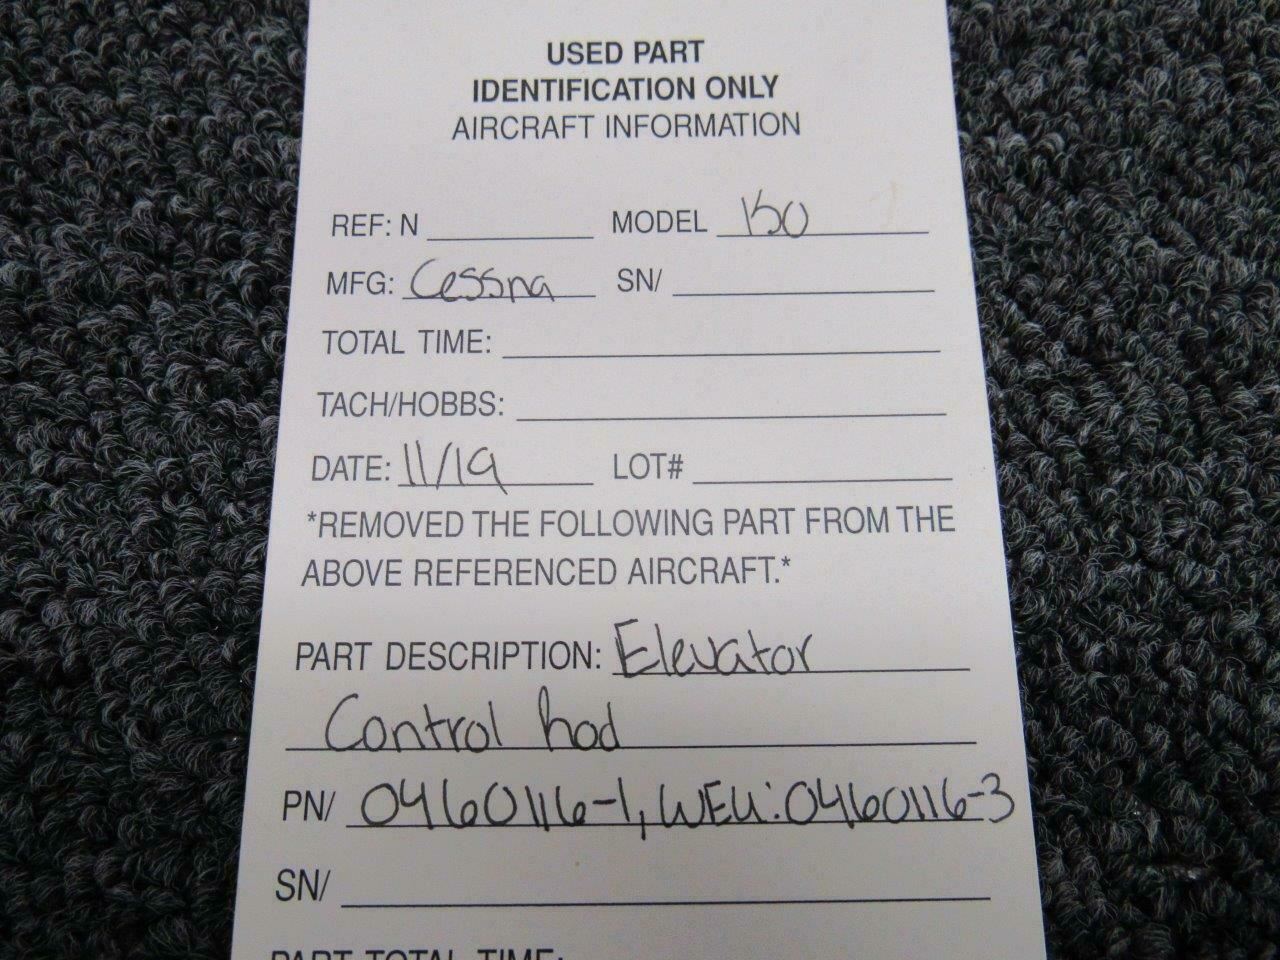 USED PART
IDENTIFICATION ONLY
AIRCRAFT INFORMATION
REF: N MODEL 150
MFG: Cessna SN/
TOTAL TIME:
TACH/HOBBS:
DATE: 11/19 LOT#
*REMOVED THE FOLLOWING PART FROM THE
ABOVE REFERENCED AIRCRAFT.*
PART DESCRIPTION: Elevator
Control Rod
PN/ 0460116-1, WEU: 0460116-3
SN/
PART TOTAL TIME: